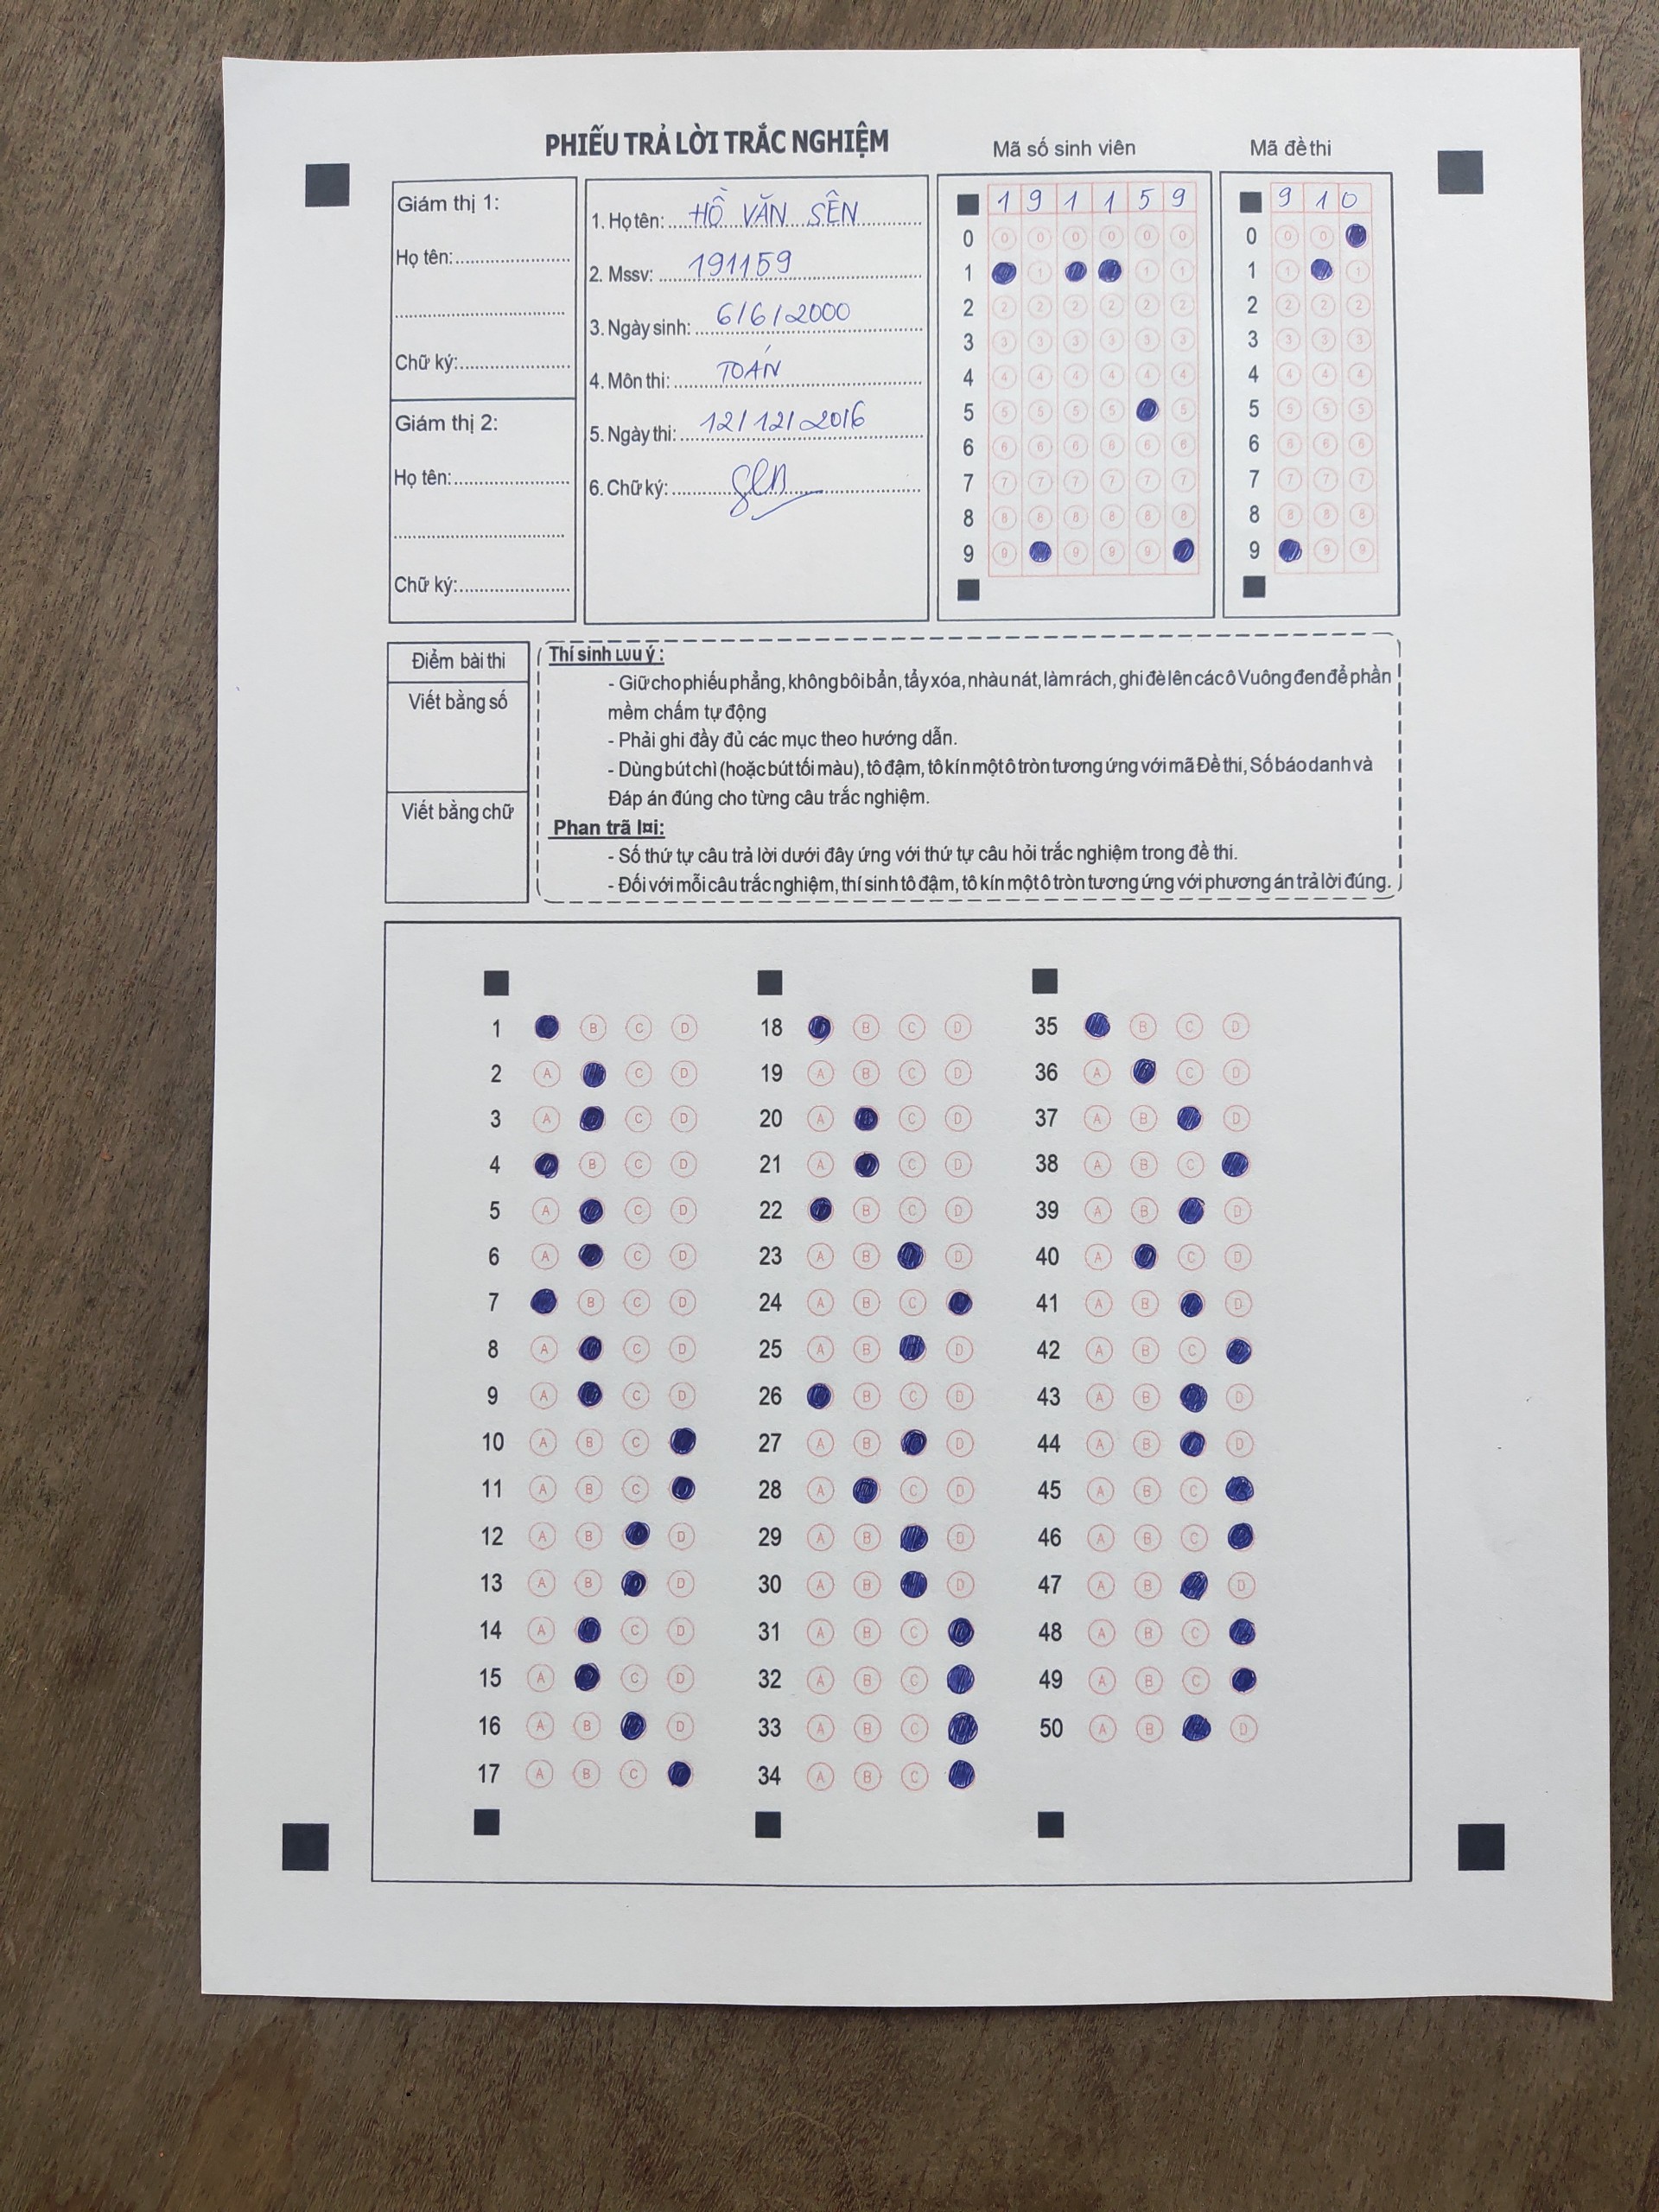 PHIẾU TRẢ LỜI TRẮC NGHIỆM
Mã số sinh viên
Mã đề thi
Giám thị 1:
Họ tên:
Chữ ký:
Giám thị 2:
Họ tên:
Chữ ký:
1. Họ tên: HỒ VĂN SÊN
2. Mssv: 191159
3. Ngày sinh: 6/6/2000
4. Môn thi: TOÁN
5. Ngày thi: 12/12/2016
6. Chữ ký:
1 9 1 1 5 9
0 0 0 0 0 0 0
1 1 1 1
2 2 2 2 2 2 2
3 3 3 3 3 3 3
4 4 4 4 4 4 4
5 5 5 5 5 5
6 6 6 6 6 6 6
7 7 7 7 7 7 7
8 8 8 8 8 8 8
9 9 9 9 9
9 1 0
0 0 0
1 1 1
2 2 2 2
3 3 3 3
4 4 4 4
5 5 5 5
6 6 6 6
7 7 7 7
8 8 8 8
9 9 9
Điểm bài thi
Viết bằng số
Viết bằng chữ
Thí sinh LƯU ý :
- Giữ cho phiếu phẳng, không bôi bẩn, tẩy xóa, nhàu nát, làm rách, ghi đè lên các ô Vuông đen để phần
mềm chấm tự động
- Phải ghi đầy đủ các mục theo hướng dẫn.
- Dùng bút chì (hoặc bút tối màu), tô đậm, tô kín một ô tròn tương ứng với mã Đề thi, Số báo danh và
Đáp án đúng cho từng câu trắc nghiệm.
Phan trã l¤i:
- Số thứ tự câu trả lời dưới đây ứng với thứ tự câu hỏi trắc nghiệm trong đề thi.
- Đối với mỗi câu trắc nghiệm, thí sinh tô đậm, tô kín một ô tròn tương ứng với phương án trả lời đúng.
1 B C D
2 A C D
3 A C D
4 B C D
5 A C D
6 A C D
7 B C D
8 A C D
9 A C D
10 A B C
11 A B C
12 A B D
13 A B D
14 A C D
15 A C D
16 A B D
17 A B C
18 B C D
19 A B C D
20 A C D
21 A C D
22 B C D
23 A B D
24 A B C
25 A B D
26 B C D
27 A B D
28 A C D
29 A B D
30 A B D
31 A B C
32 A B C
33 A B C
34 A B C
35 B C D
36 A C D
37 A B D
38 A B C
39 A B D
40 A C D
41 A B D
42 A B C
43 A B D
44 A B D
45 A B C
46 A B C
47 A B D
48 A B C
49 A B C
50 A B D